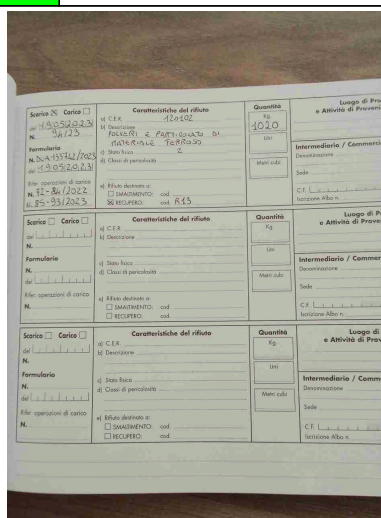 Scarico ☒ Carico ☐
del 19052023
N. 94/23
Formulario
del 19052023
Rifer. operazioni di carico
N. 72-84/2022
N. 85-93/2023
Caratteristiche del rifiuto
a) C.E.R. 120102
b) Descrizione
POLVERI E PARTICOLATO DI
MATERIALE FERROSO
c) Stato fisico 2
d) Classi di pericolosità
e) Rifiuto destinato a:
☐ SMALTIMENTO: cod.
☒ RECUPERO: cod. R13
Quantità
Kg
1020
Litri
Metri cubi
Luogo di
e Attività di
Intermediario /
Denominazione
Sede
C.F.
Iscrizione Albo n.
Scarico ☐ Carico ☐
del
N.
Formulario
N.
del
Rifer. operazioni di carico
N.
Caratteristiche del rifiuto
a) C.E.R.
b) Descrizione
c) Stato fisico
d) Classi di pericolosità
e) Rifiuto destinato a:
☐ SMALTIMENTO: cod.
☐ RECUPERO: cod.
Quantità
Kg
Litri
Metri cubi
Luogo di
e Attività di
Intermediario /
Denominazione
Sede
C.F.
Iscrizione Albo n.
Scarico ☐ Carico ☐
del
N.
Formulario
N.
del
Rifer. operazioni di carico
N.
Caratteristiche del rifiuto
a) C.E.R.
b) Descrizione
c) Stato fisico
d) Classi di pericolosità
e) Rifiuto destinato a:
☐ SMALTIMENTO: cod.
☐ RECUPERO: cod.
Quantità
Kg
Litri
Metri cubi
Luogo di
e Attività di
Intermediario /
Denominazione
Sede
C.F.
Iscrizione Albo n.